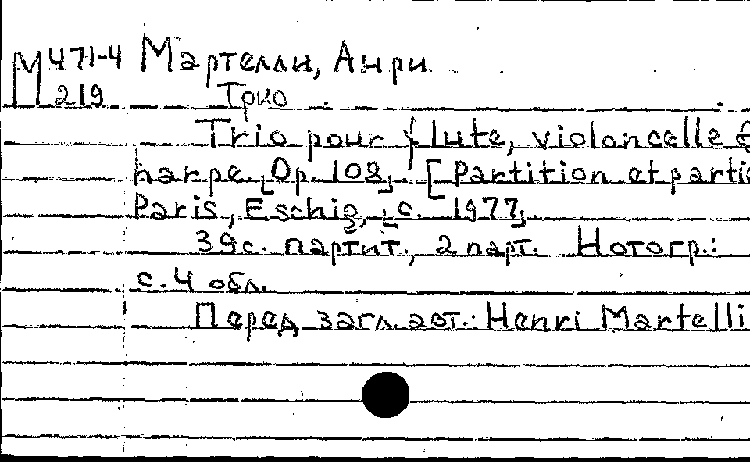 М 471-4 Мартелли, Анри
219 Трио
Trio pour flute, violoncelle e
harpe. [Op. 102]. [Partition et parti
Paris, Eschig, [с. 1977].
39с. партит., 2 парт. Нотогр.:
с. 4 обл.
Перед загл. авт.: Henri Martelli